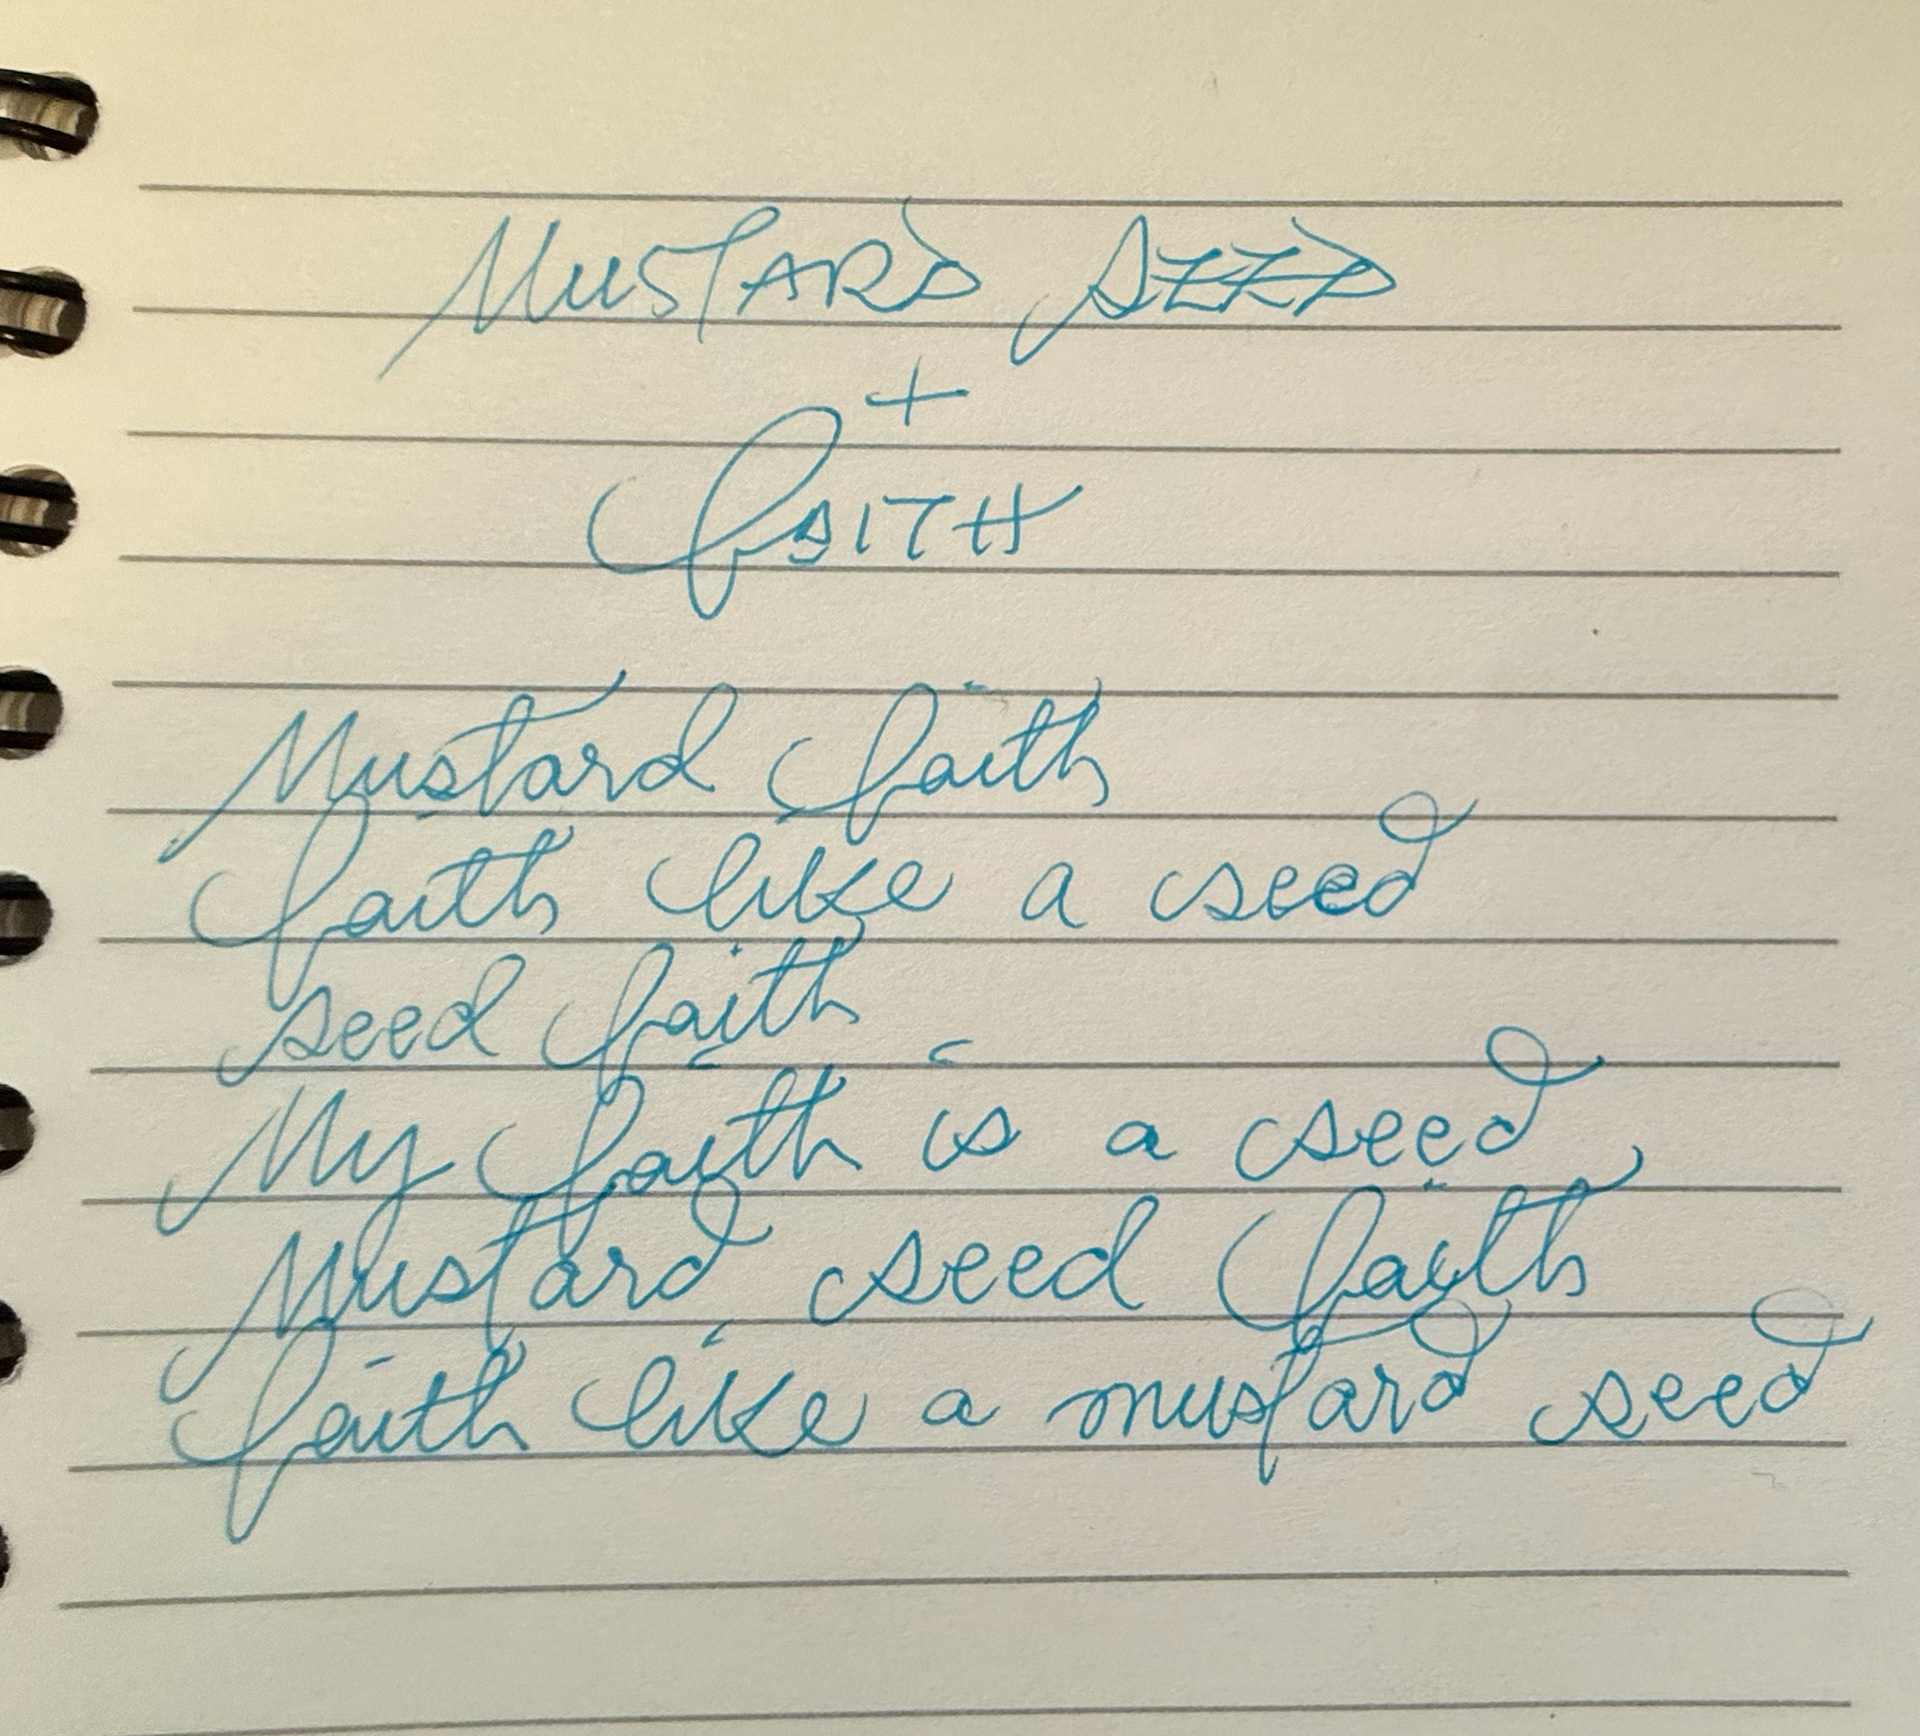 MUSTARD SEED
+
FAITH
Mustard faith
faith like a seed
seed faith
My faith is a seed
Mustard seed faith
faith like a mustard seed